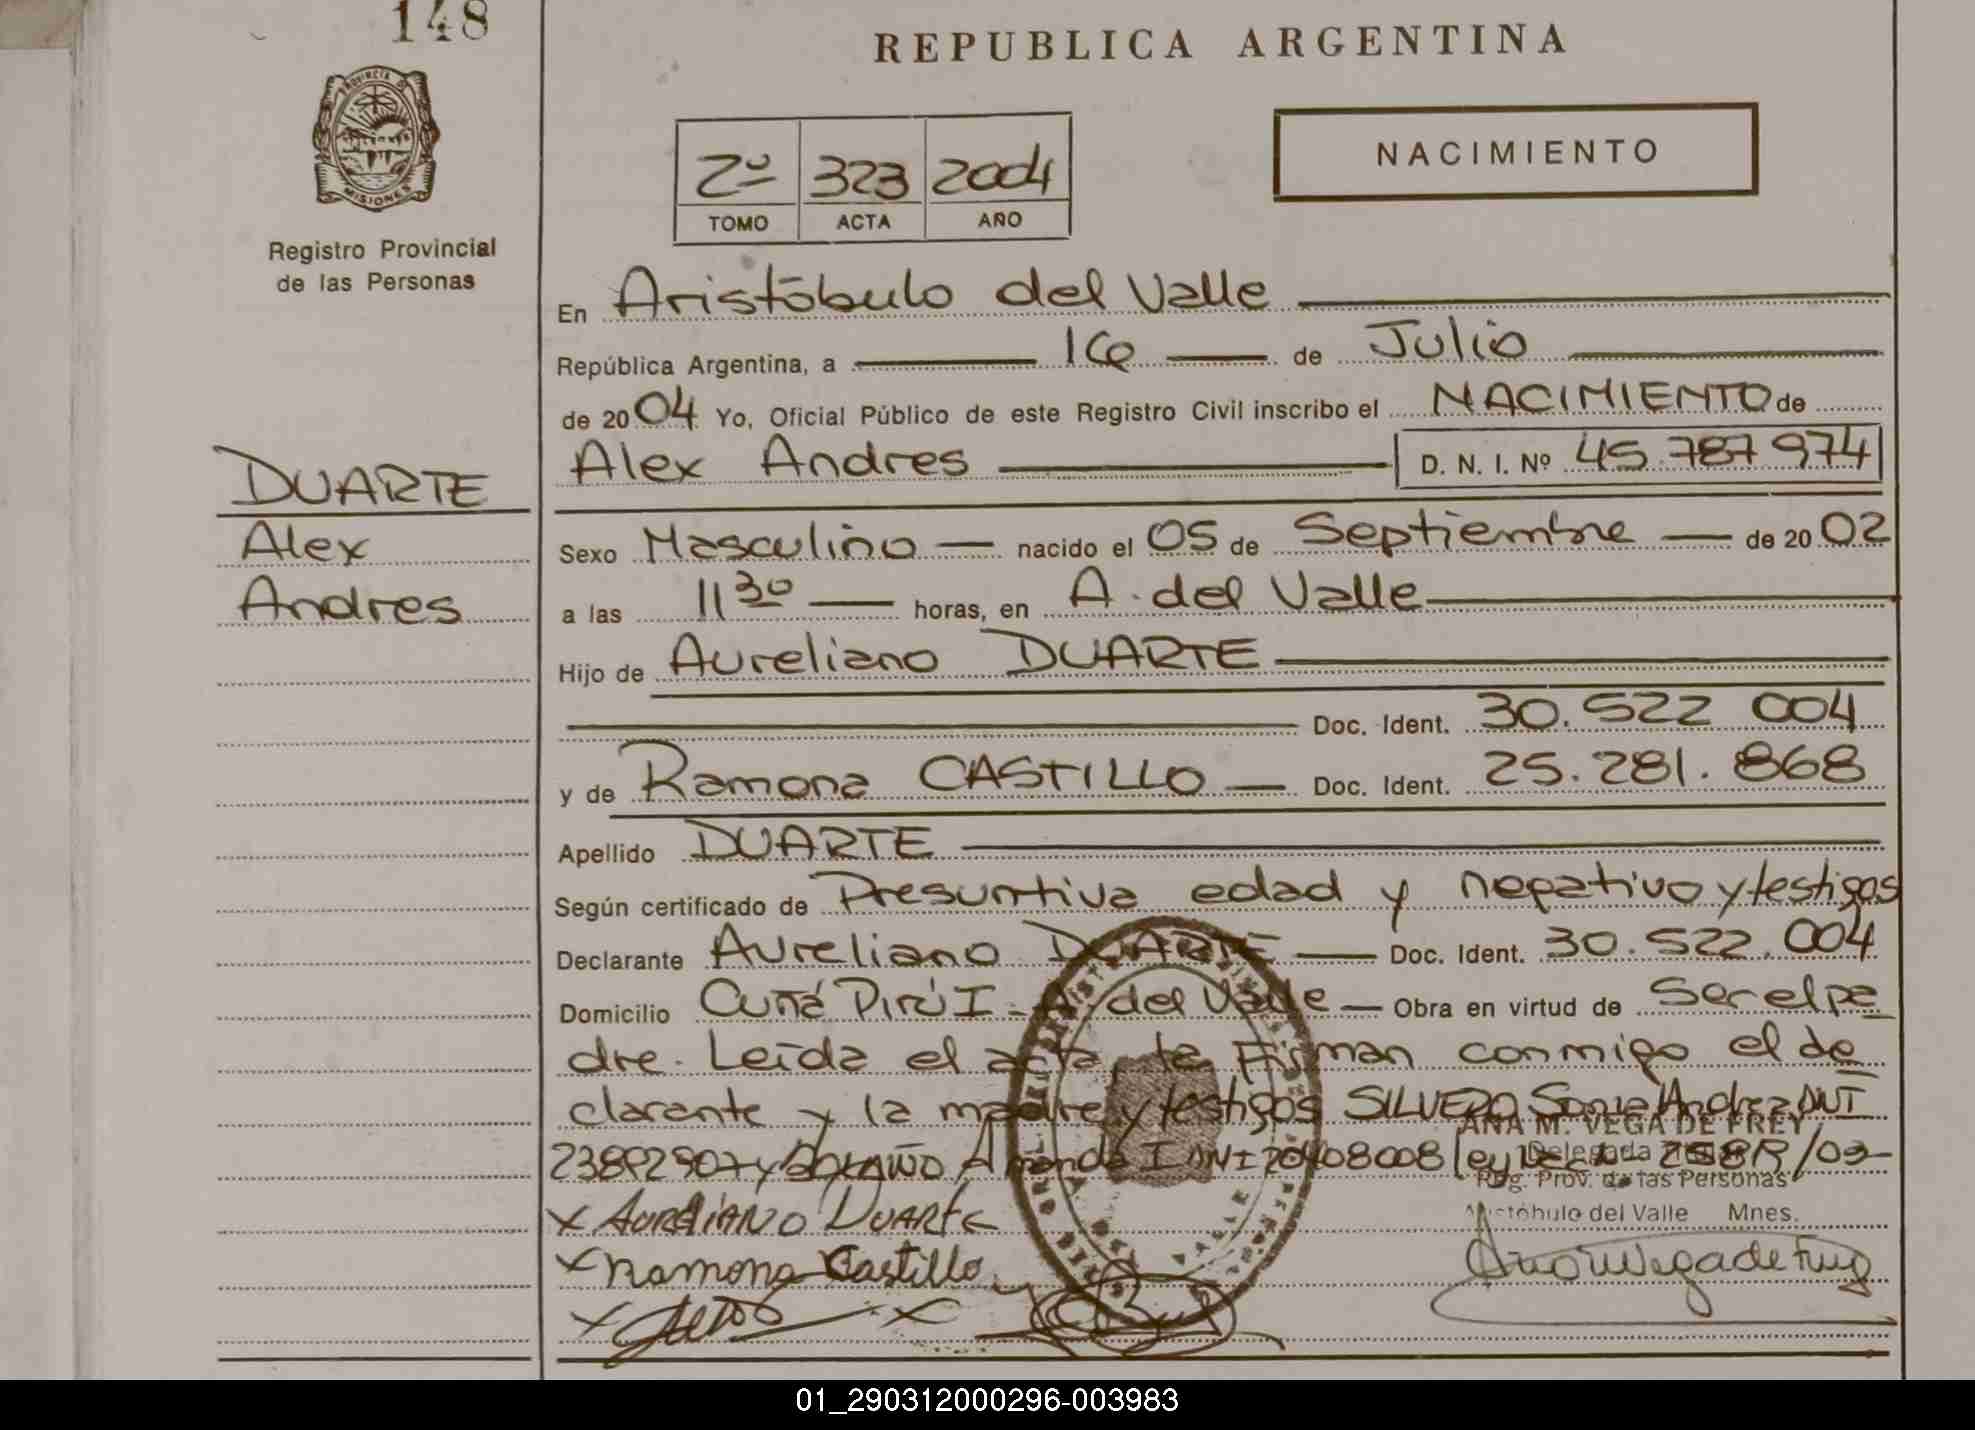 148
REPUBLICA ARGENTINA
PROVINCIA DE
MISIONES
2º 323 2004
TOMO ACTA AÑO
NACIMIENTO
Registro Provincial
de las Personas
En Aristóbulo del Valle
República Argentina, a 16 de Julio
de 2004 Yo, Oficial Público de este Registro Civil inscribo el NACIMIENTO de
Alex Andres D. N. I. Nº 45.787974
DUARTE
Alex
Andres
Sexo Masculino nacido el 05 de Septiembre de 2002
a las 11 30 horas, en A. del Valle
Hijo de Aureliano DUARTE
Doc. Ident. 30.522 004
y de Ramona CASTILLO Doc. Ident. 25.281.868
Apellido DUARTE
Según certificado de Presuntiva edad y negativo y testigos
Declarante Aureliano DUARTE Doc. Ident. 30.522.004
Domicilio Cuñá Pirú I - A. del Valle Obra en virtud de Ser el pa
dre. Leída el acta, la firman conmigo el de
clarante y la madre y testigos SILVERO Sonia Andrea DNI
y Amanda I DNI 20408008 ley
ANA M. VEGA DE FREY
Delegada
Reg. Prov. de las Personas
Aristóbulo del Valle Mnes.
x AURELIANO DUARTE
x Ramona Castillo
01_290312000296-003983